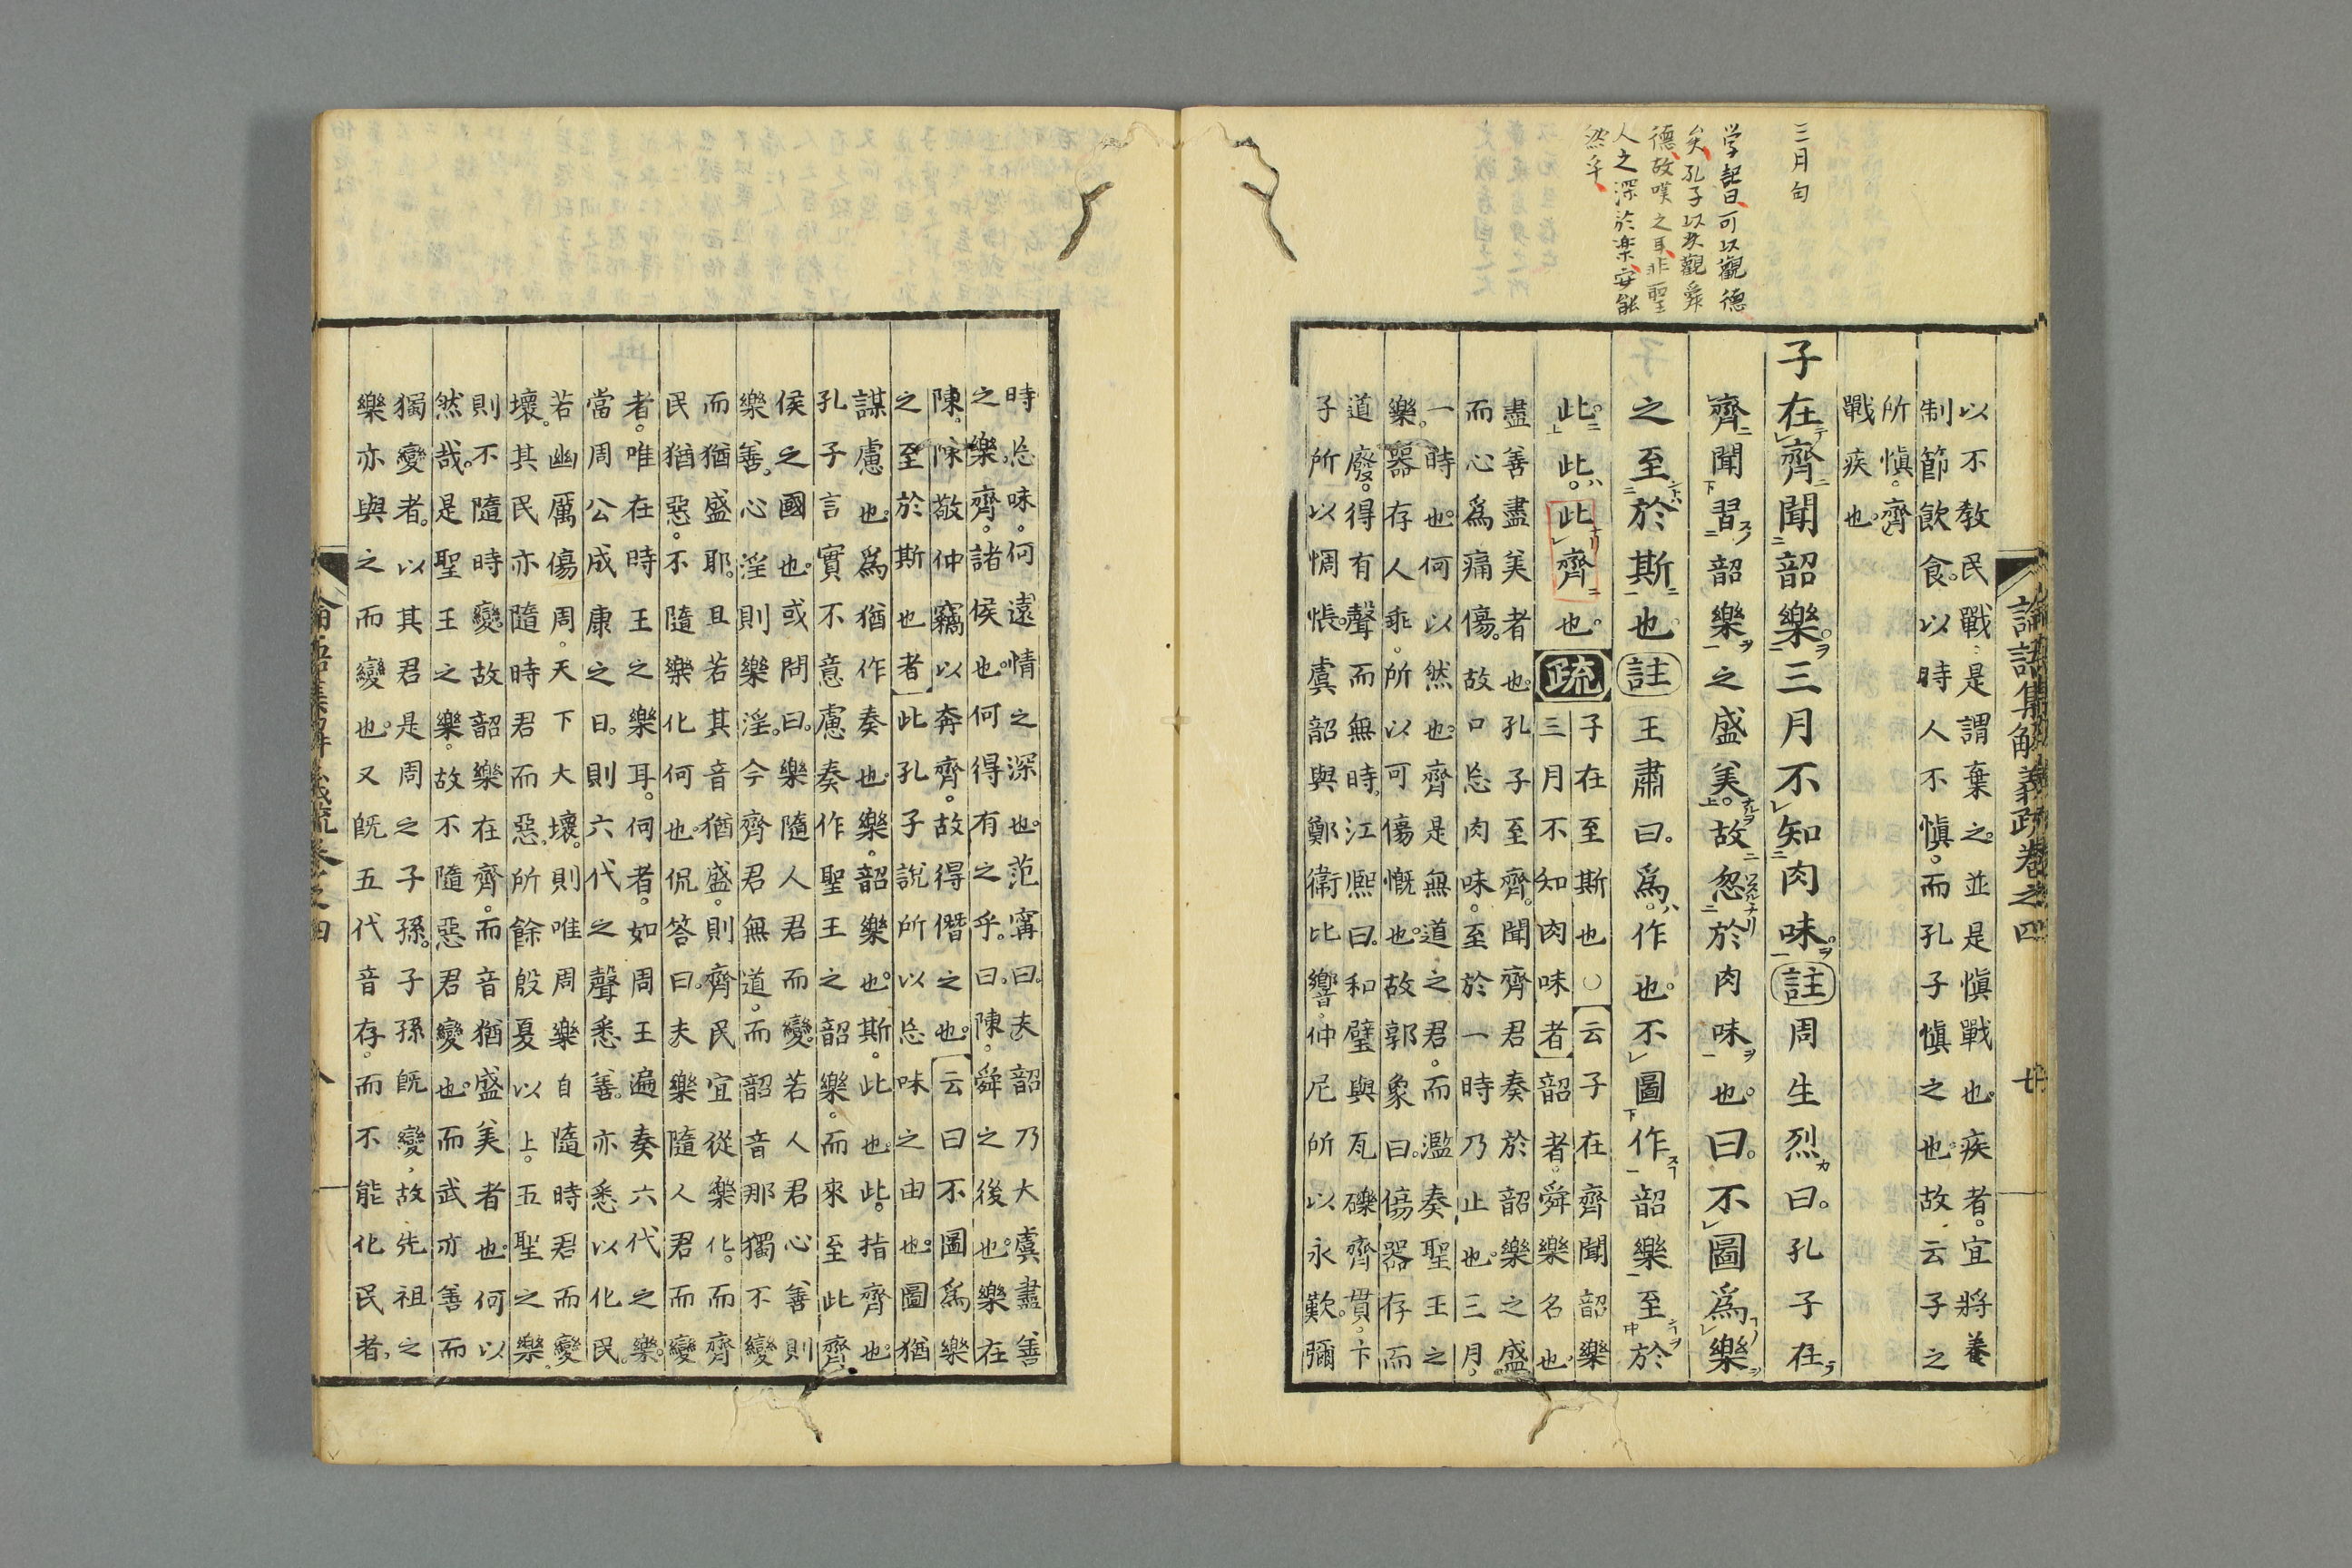 三月旬
学記曰可以觀德
矣孔子以玆觀舜
德故嘆之耳非聖
人之深於楽安能
然乎
論語集解義疏卷之四
以不敎民戰是謂棄之並是愼戰也疾者宜將養
制節飮食以時人不愼而孔子愼之也故云子之
所愼齊
戰疾也
子在齊聞韶樂三月不知肉味註周生烈曰孔子在
齊聞習韶樂之盛美故忽於肉味也曰不圖爲樂
之至於斯也註王肅曰爲作也不圖作韶樂至於
此此此齊也疏
子在至斯也○云子在齊聞韶樂
三月不知肉味者韶者舜樂名也
盡善盡美者也孔子至齊聞齊君奏於韶樂之盛
而心爲痛傷故口忘肉味至於一時乃止也三月
一時也何以然也齊是無道之君而濫奏聖王之
樂器存人乖所以可傷慨也故郭象曰傷器存而
道廢得有聲而無時江熈曰和璧與瓦礫齊貫卞
子所以惆悵虞韶與鄭衛比響仲尼所以永歎彌
時忘味何遠情之深也范甯曰夫韶乃大虞盡善
之樂齊諸侯也何得有之乎曰陳舜之後也樂在
陳陳敬仲竊以奔齊故得僭之也云曰不圖爲樂
之至於斯也者此孔子說所以忘味之由也圖猶
謀慮也爲猶作奏也樂韶樂也斯此也此指齊也
孔子言實不意慮奏作聖王之韶樂而來至此齊
侯之國也或問曰樂隨人君而變若人君心善則
樂善心淫則樂淫今齊君無道而韶音那獨不變
而猶盛耶且若其音猶盛則齊民宜從樂化而齊
民猶惡不隨樂化何也侃答曰夫樂隨人君而變
者唯在時王之樂耳何者如周王遍奏六代之樂
當周公成康之日則六代之聲悉善亦悉以化民
若幽厲傷周天下大壞則唯周樂自隨時君而變
壞其民亦隨時君而惡所餘殷夏以上五聖之樂
則不隨時變故韶樂在齊而音猶盛美者也何以
然哉是聖王之樂故不隨惡君變也而武亦善而
獨變者以其君是周之子孫子孫旣變故先祖之
樂亦與之而變也又旣五代音存而不能化民者